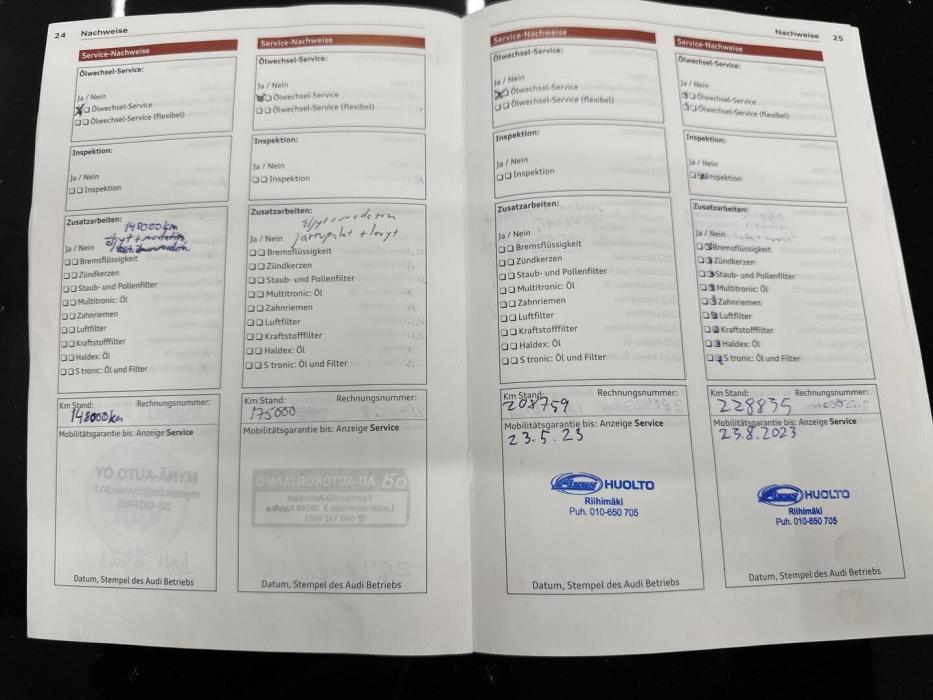 24 Nachweise
Service-Nachweise
Ölwechsel-Service:
Ja / Nein
Ölwechsel-Service
Ölwechsel-Service (flexibel)
Inspektion:
Ja / Nein
Inspektion
Zusatzarbeiten:
148000km
öljyt+suodatin
Ja / Nein
Bremsflüssigkeit
Zündkerzen
Staub- und Pollenfilter
Multitronic: Öl
Zahnriemen
Luftfilter
Kraftstofffilter
Haldex: Öl
S tronic: Öl und Filter
Km Stand: Rechnungsnummer:
148000km
Mobilitätsgarantie bis: Anzeige Service
Datum, Stempel des Audi Betriebs
Service-Nachweise
Ölwechsel-Service:
Ja / Nein
Ölwechsel-Service
Ölwechsel-Service (flexibel)
Inspektion:
Ja / Nein
Inspektion
Zusatzarbeiten:
öljyt+suodatin
Ja / Nein jarrupalat + levyt
Bremsflüssigkeit
Zündkerzen
Staub- und Pollenfilter
Multitronic: Öl
Zahnriemen
Luftfilter
Kraftstofffilter
Haldex: Öl
S tronic: Öl und Filter
Km Stand: Rechnungsnummer:
175000
Mobilitätsgarantie bis: Anzeige Service
Datum, Stempel des Audi Betriebs
Nachweise 25
Service-Nachweise
Ölwechsel-Service:
Ja / Nein
Ölwechsel-Service
Ölwechsel-Service (flexibel)
Inspektion:
Ja / Nein
Inspektion
Zusatzarbeiten:
Ja / Nein
Bremsflüssigkeit
Zündkerzen
Staub- und Pollenfilter
Multitronic: Öl
Zahnriemen
Luftfilter
Kraftstofffilter
Haldex: Öl
S tronic: Öl und Filter
Km Stand: Rechnungsnummer:
208759
Mobilitätsgarantie bis: Anzeige Service
23.5.23
HUOLTO
Riihimäki
Puh. 010-650 705
Datum, Stempel des Audi Betriebs
Service-Nachweise
Ölwechsel-Service:
Ja / Nein
Ölwechsel-Service
Ölwechsel-Service (flexibel)
Inspektion:
Ja / Nein
Inspektion
Zusatzarbeiten:
Ja / Nein
Bremsflüssigkeit
Zündkerzen
Staub- und Pollenfilter
Multitronic: Öl
Zahnriemen
Luftfilter
Kraftstofffilter
Haldex: Öl
S tronic: Öl und Filter
Km Stand: Rechnungsnummer:
228835
Mobilitätsgarantie bis: Anzeige Service
23.8.2023
HUOLTO
Riihimäki
Puh. 010-650 705
Datum, Stempel des Audi Betriebs